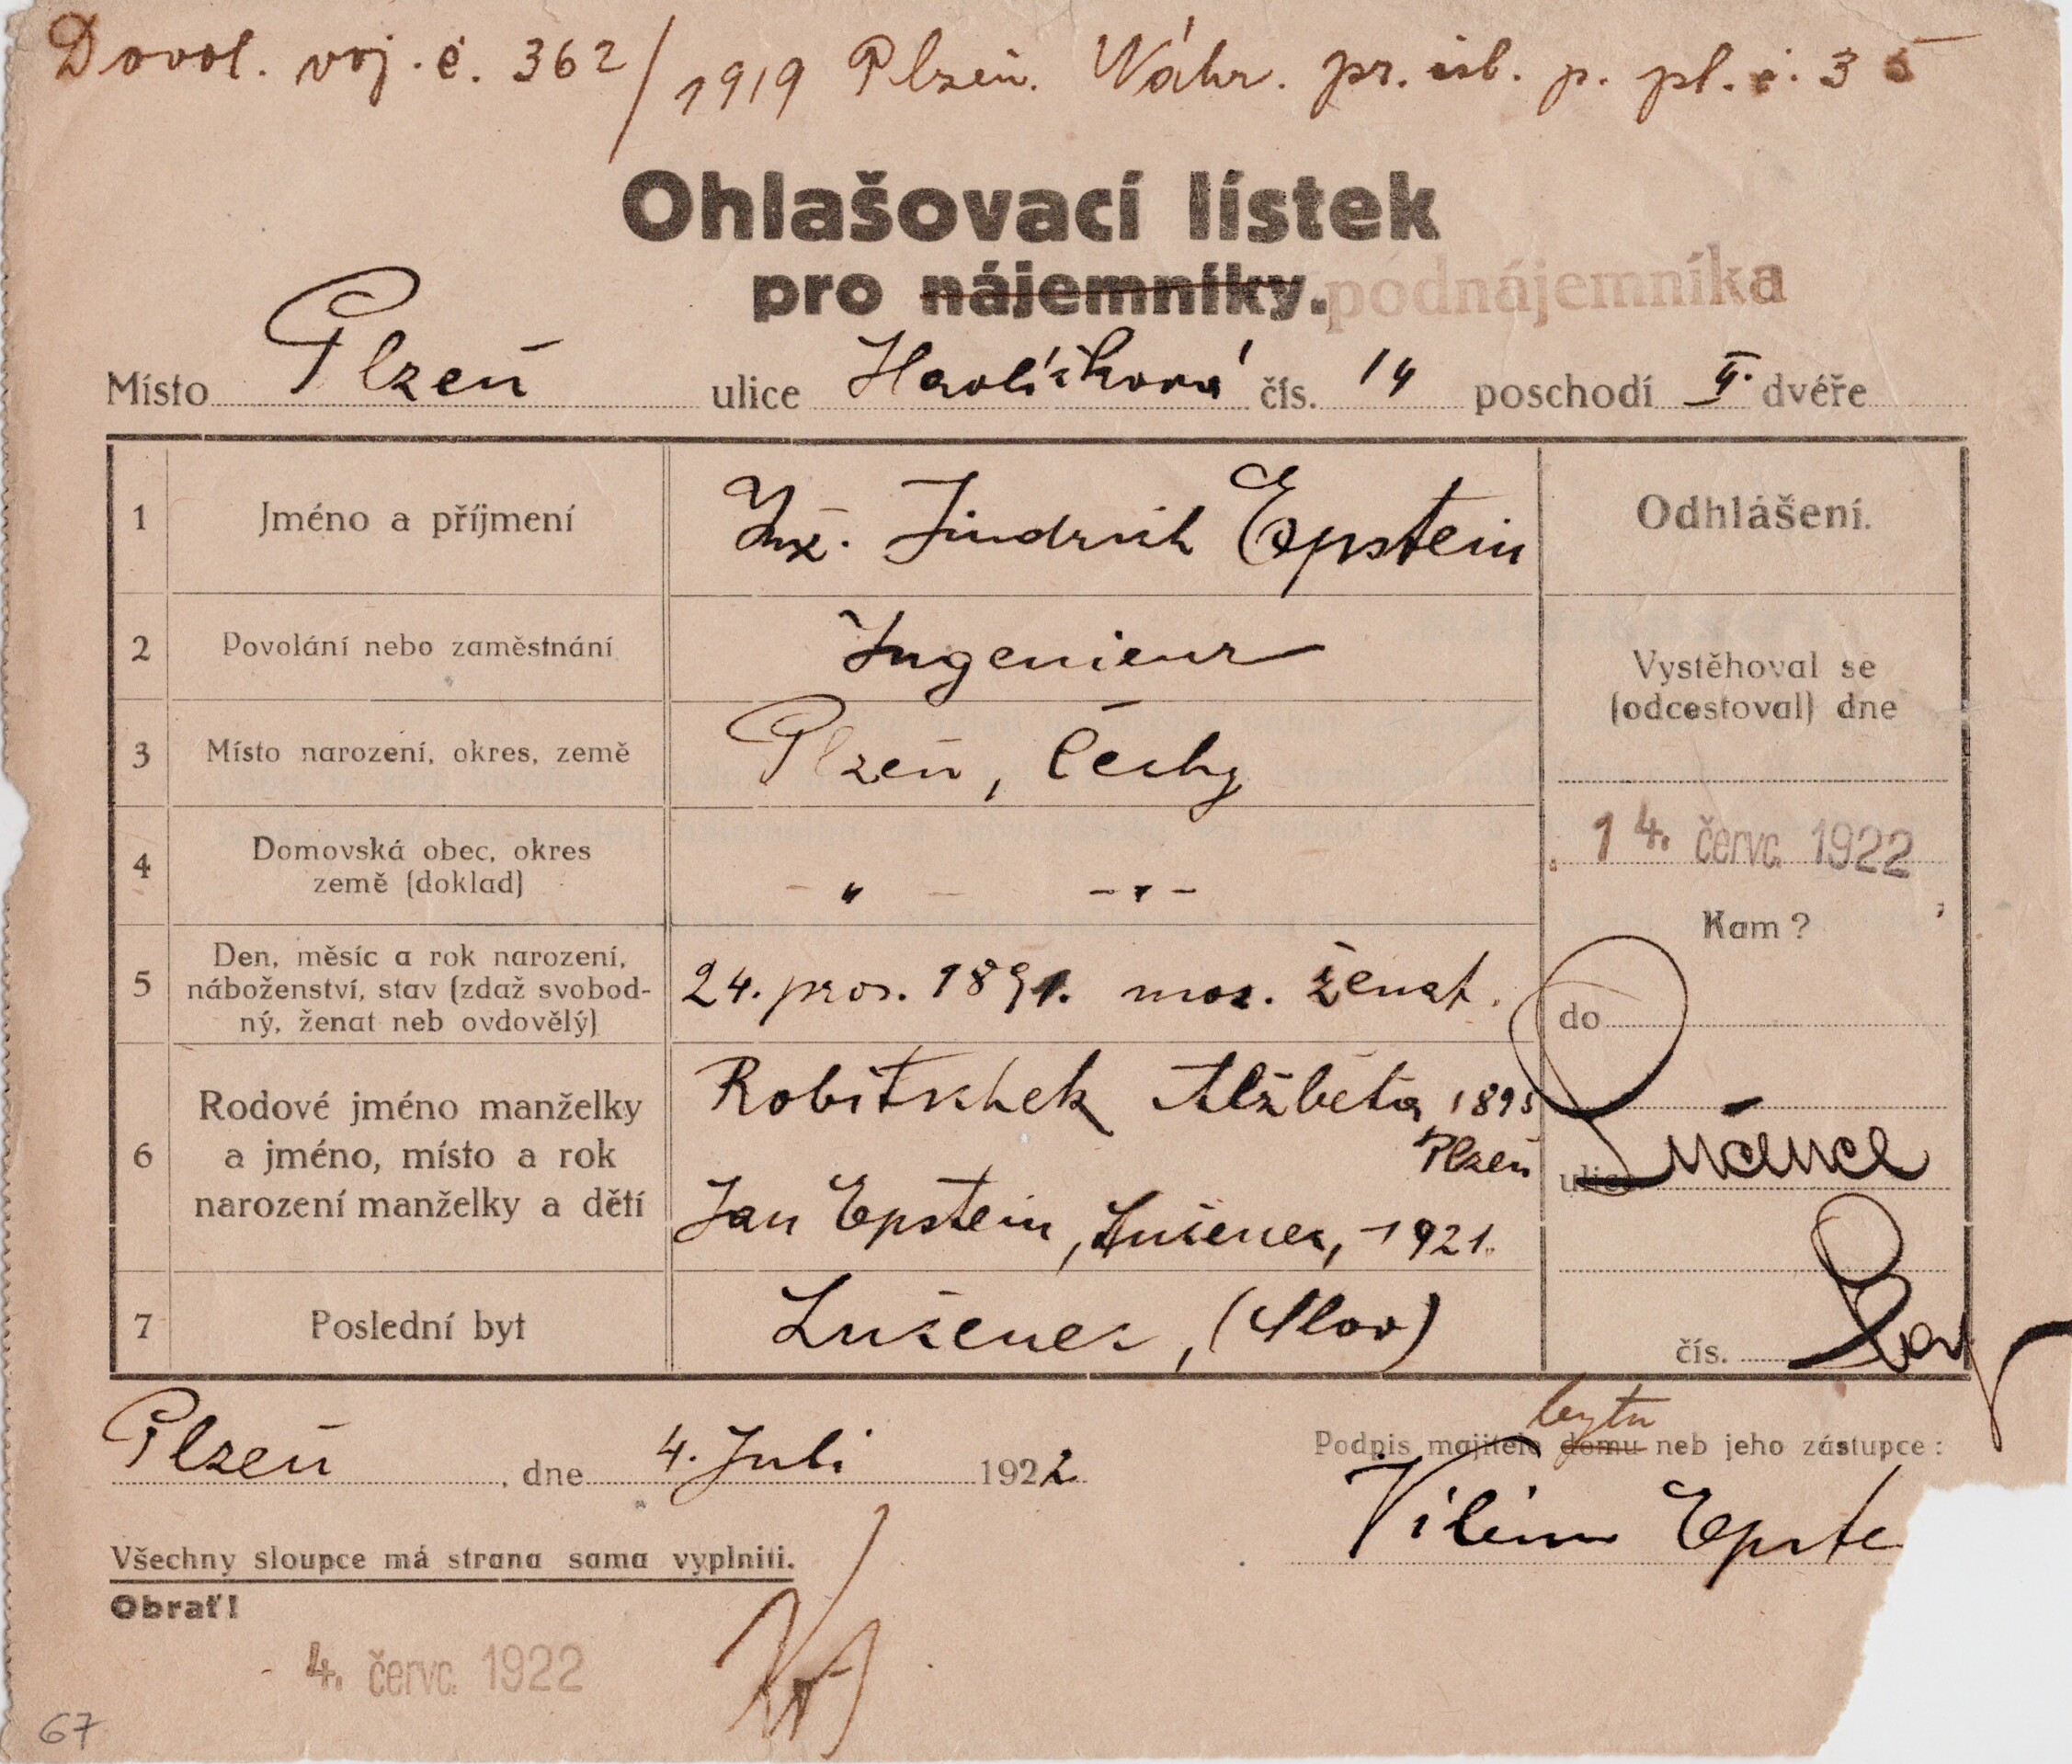 Dovol. voj. č. 362/1919 Plzeň. Náhr. pr. úb. p. pl. č. 35
Ohlašovací lístek
pro nájemníky. podnájemníka
Místo Plzeň ulice Havlíčkova čís. 14 poschodí II. dvéře
1 Jméno a příjmení Inž. Jindrich Epstein
Odhlášení.
2 Povolání nebo zaměstnání Ingenieur
Vystěhoval se
(odcestoval) dne
3 Místo narození, okres, země Plzeň, Čechy
14. červc. 1922
4 Domovská obec, okres
země (doklad) - " - - " -
Kam?
5 Den, měsíc a rok narození,
náboženství, stav (zdaž svobod-
ný, ženat neb ovdovělý)
24. pros. 1891. mos. ženat.
do
6 Rodové jméno manželky
a jméno, místo a rok
narození manželky a dětí
Robitschek Alžběta 1895
Plzeň
Jan Epstein, Lučenec, 1921.
ulice
7 Poslední byt Lučenec, (Slov)
čís.
Plzeň, dne 4. Juli 1922
bytu
Podpis majitele domu neb jeho zástupce:
Vilém Epste
Všechny sloupce má strana sama vyplniti.
Obrať!
4. červc. 1922
67